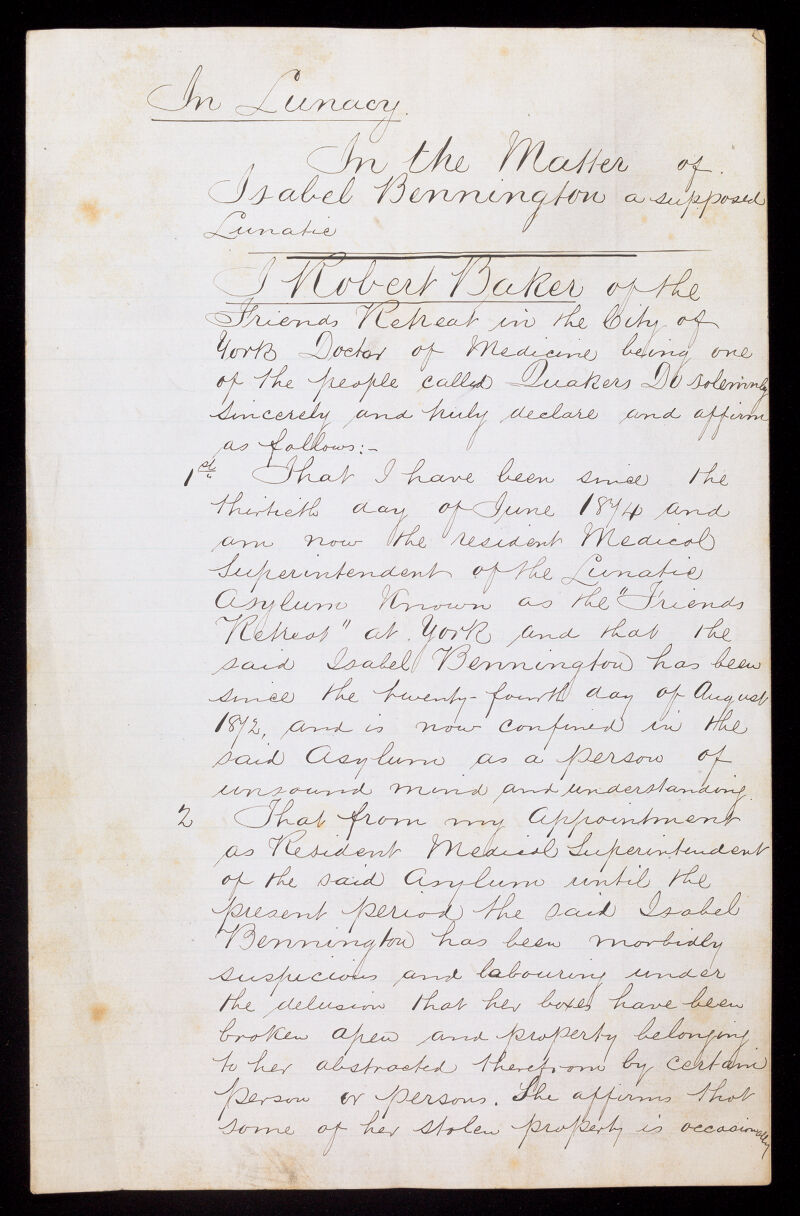 In Lunacy.
In the Matter of
Isabel Bennington a supposed
Lunatic
I Robert Baker of the
Friends Retreat in the City of
York Doctor of Medicine being one
of the people called Quakers Do solemnly
sincerely and truly declare and affirm
as follows:-
1st That I have been since the
thirtieth day of June 1874 and
am now the resident Medical
Superintendent of the Lunatic
Asylum Known as the "Friends
Retreat" at York and that the
said Isabel Bennington has been
since the twenty-fourth day of August
1872, and is now confined in the
said Asylum as a person of
unsound mind and understanding.
2 That from my Appointment
as Resident Medical Superintendent
of the said Asylum until the
present period the said Isabel
Bennington has been morbidly
suspicious and labouring under
the delusion that her boxes have been
broken open and property belonging
to her abstracted therefrom by certain
person or persons. She affirms that
some of her stolen property is occasionally